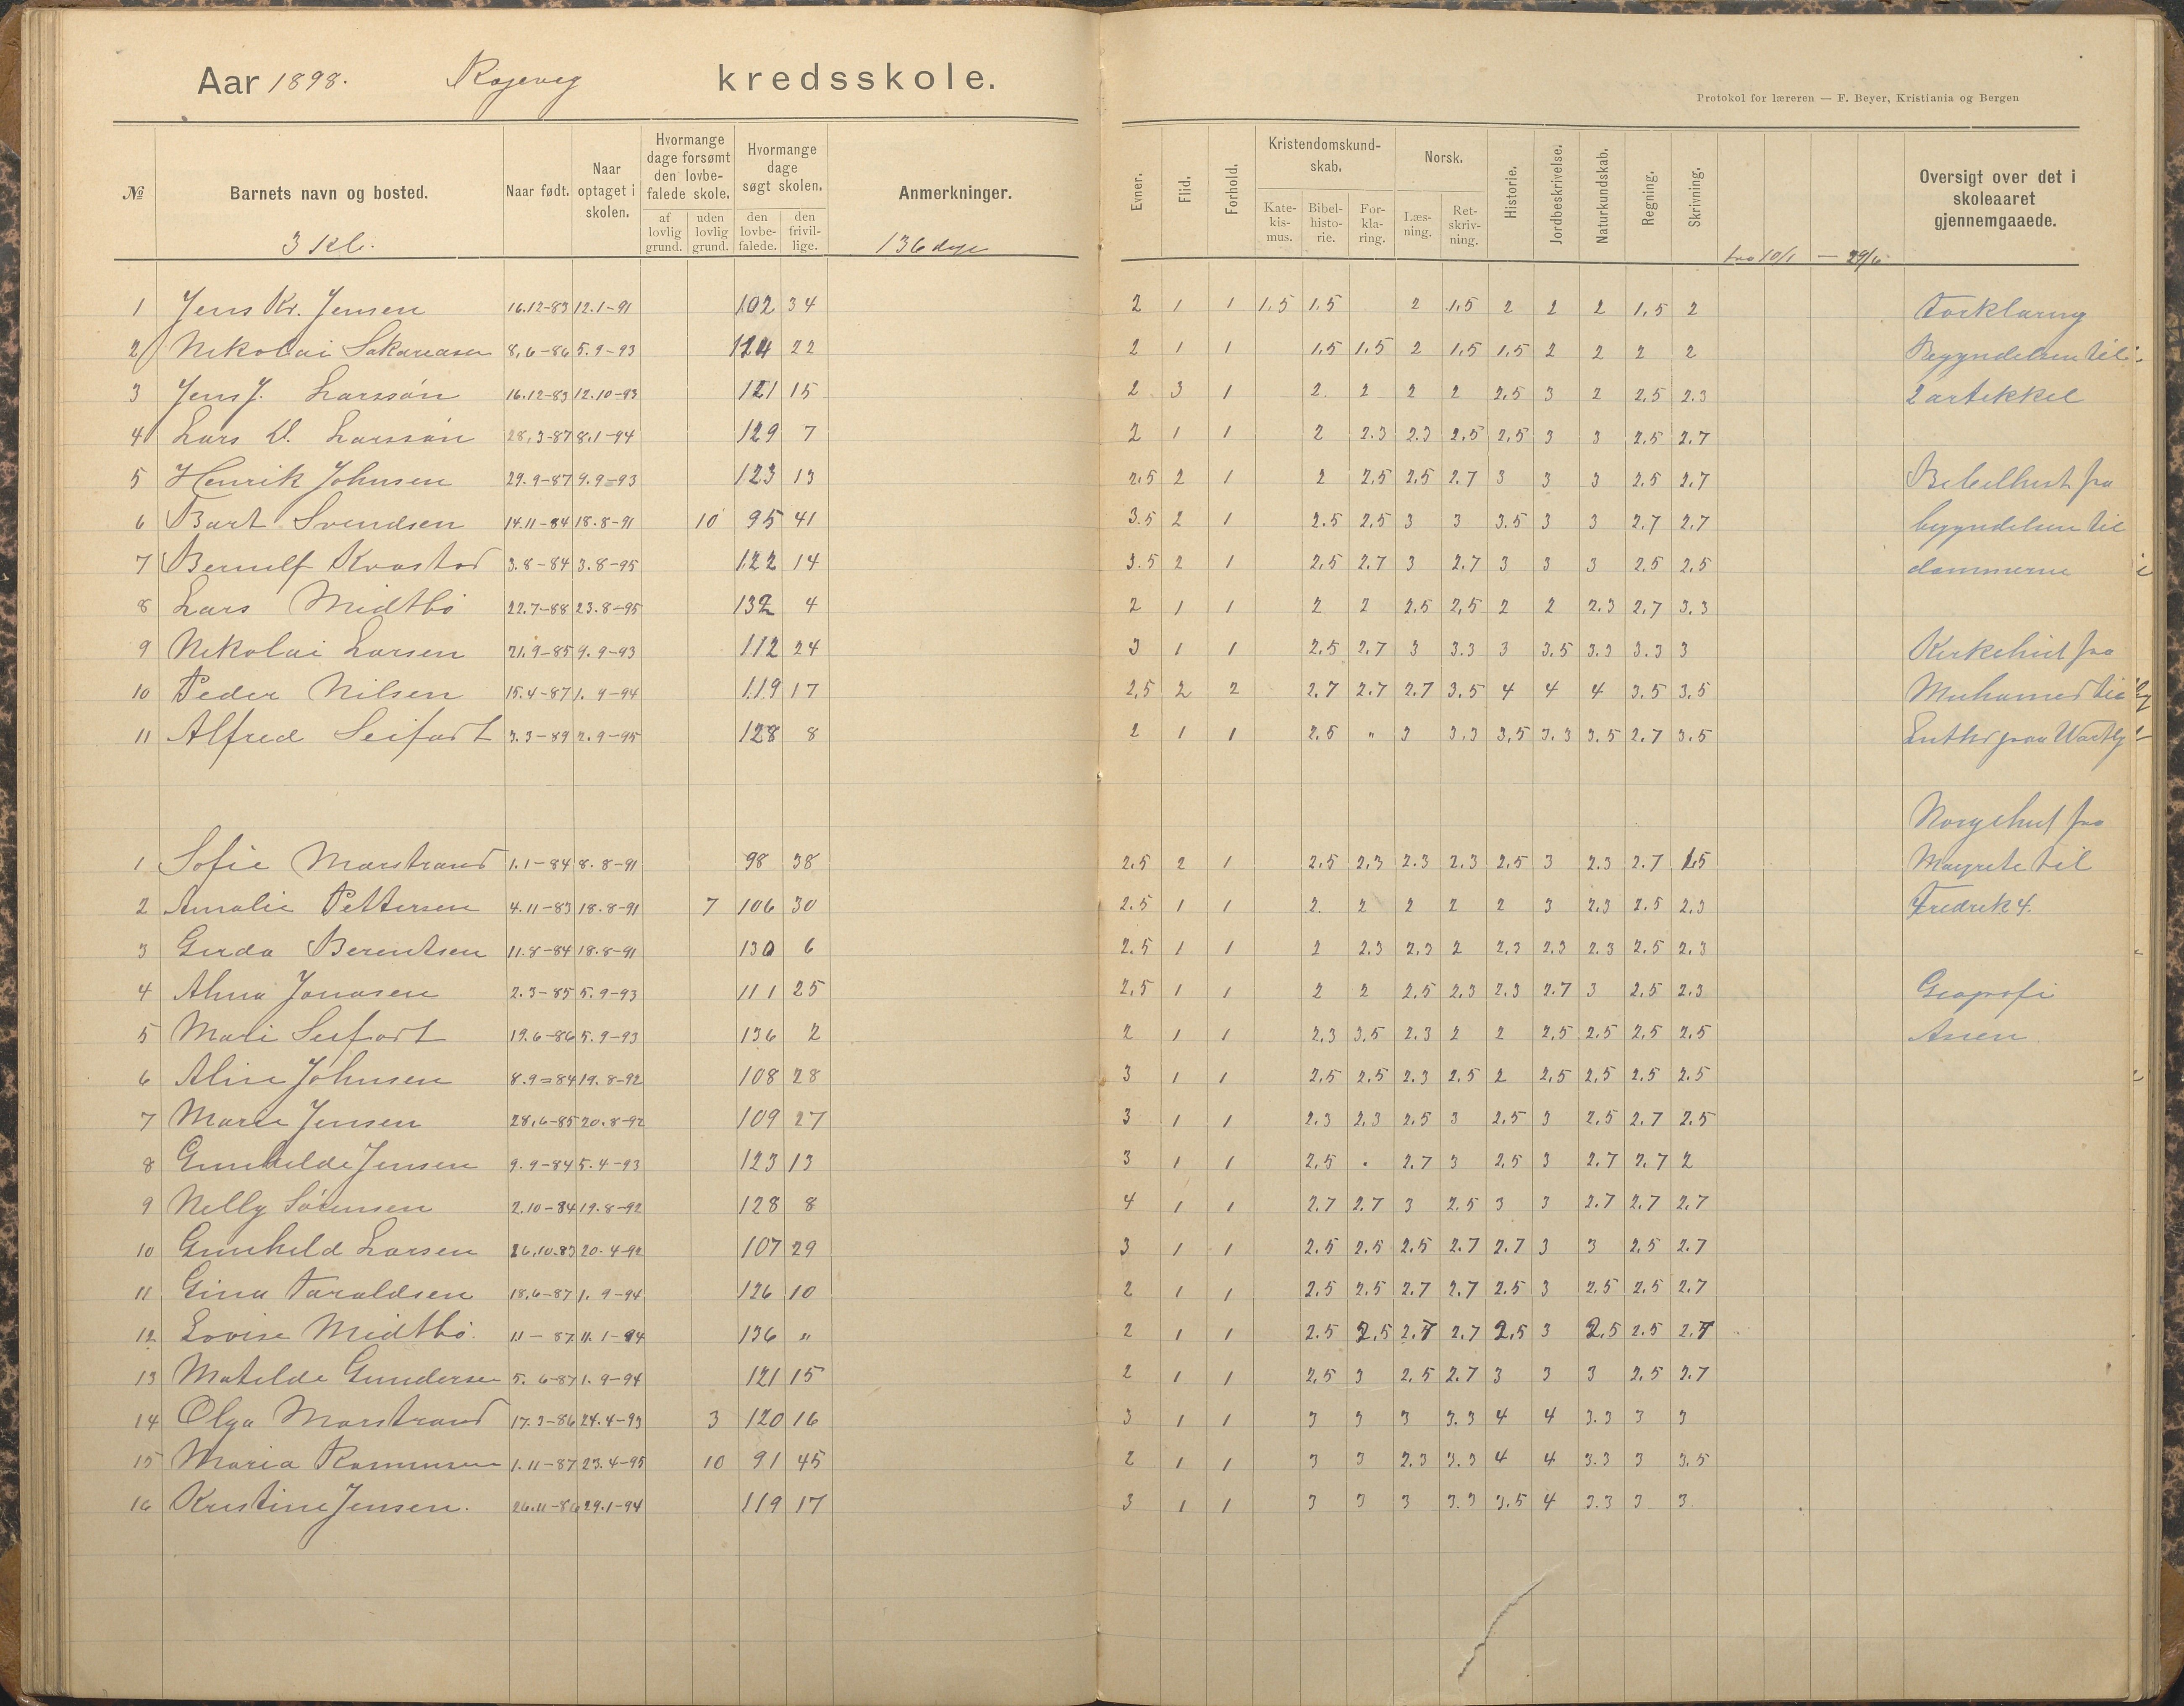 Aar 1898. Rægevig kredsskole.
Protokol for læreren — F. Beyer, Kristiania og Bergen
№ Barnets navn og bosted. Naar født. Naar optaget i skolen. Hvormange dage forsømt den lovbefalede skole. af lovlig grund. uden lovlig grund. Hvormange dage søgt skolen. den lovbefalede. den frivillige. Anmerkninger.
Evner. Flid. Forhold. Kristendomskundskab. Katekismus. Bibelhistorie. Forklaring. Norsk. Læsning. Retskrivning. Historie. Jordbeskrivelse. Naturkundskab. Regning. Skrivning. Oversigt over det i skoleaaret gjennemgaaede.
3 Kl. 136 dage fra 10/1 — 29/6
1 Jens Kr. Jensen 16.12-83 12.1-91 102 34 2 1 1 1,5 1,5 2 1,5 2 2 2 1,5 2 Forklaring
2 Nikolai Sakariasen 8,6-86 5.9-93 114 22 2 1 1 1,5 1,5 2 1,5 1,5 2 2 2 2 Begyndelsen til
3 Jens J. Larssøn 16.12-83 12.10-93 121 15 2 3 1 2. 2 2 2 2,5 3 2 2,5 2.3 2 artikkel
4 Lars D. Larssøn 28,3-87 8,1-94 129 7 2 1 1 2 2.3 2.3 2,5 2,5 3 3 2.5 2.7
5 Henrik Johnsen 29.9-87 9.9-93 123 13 2,5 2 1 2 2,5 2,5 2.7 3 3 3 2.5 2,7 Bibelhist fra
6 Bart Svendsen 14.11-84 18.8-91 10 95 41 3.5 2 1 2.5 2,5 3 3 3.5 3 3 2.7 2.7 begyndelsen til
7 Bernulf Kvastad 3.8-84 3.8-95 122 14 3.5 2 1 2,5 2.7 3 2.7 3 3 3 2,5 2,5 dommerne
8 Lars Midtbø 22.7-88 23.8-95 132 4 2 1 1 2 2 2.5 2,5 2 2 2.3 2.7 3.3
9 Nikolai Larsen 21.9-85 9.9-93 112 24 3 1 1 2,5 2,7 3 3.3 3 3.5 3.3 3.3 3 Kirkehist fra
10 Peder Nilsen 15.4-87 1.9-94 119 17 2,5 2 2 2.7 2.7 2.7 3.5 4 4 4 3.5 3,5 Muhamed til
11 Alfred Seifart 3.3-89 2.9-95 128 8 2 1 1 2,5 „ 3 3.3 3,5 3.3 3.5 2.7 3.5 Luther paa Wartbg
Norgehist fra
1 Sofie Marstrand 1.1-84 8.8-91 98 38 2.5 2 1 2.5 2,3 2.3 2.3 2,5 3 2.3 2.7 1,5 Margrete til
2 Amalie Pettersen 4.11-83 18.8-91 7 106 30 2.5 1 1 2. 2 2 2 2 3 2,3 2.5 2,3 Fredrik 4.
3 Gerda Berentsen 11.8-84 18.8-91 130 6 2.5 1 1 2 2.3 2,3 2 2,3 2.3 2.3 2.5 2.3
4 Alma Jonasen 2.3-85 5.9-93 111 25 2,5 1 1 2 2 2,5 2,3 2.3 2.7 3 2,5 2.3 Geografi
5 Mali Seifart 19.6-86 5.9-93 136 2 2 1 1 2,3 3,5 2.3 2 2 2,5 2.5 2,5 2,5 Asien.
6 Aline Johnsen 8.9-84 19.8-92 108 28 3 1 1 2,5 2.5 2.3 2.5 2 2,5 2,5 2.5 2.5
7 Marie Jensen 28,6-85 20.8-92 109 27 3 1 1 2.3 2,3 2.5 3 2,5 3 2,5 2.7 2.5
8 Gunhilde Jensen 9.9-84 5.4-93 123 13 3 1 1 2,5 . 2.7 3 2,5 3 2.7 2,7 2
9 Nelly Sørensen 2.10-84 19.8-92 128 8 4 1 1 2.7 2.7 3 2.5 3 3 2.7 2.7 2,7
10 Gunhild Larsen 26,10.83 20.4-92 107 29 3 1 1 2.5 2.5 2,5 2.7 2.7 3 3 2,5 2.7
11 Gina Taraldsen 18.6-87 1.9-94 126 10 2 1 1 2,5 2.5 2.7 2.7 2.5 3 2,5 2,5 2.7
12 Lovise Midtbø. 11-87 11.1-94 136 „ 2 1 1 2.5 2,5 2.7 2.7 2,5 3 2,5 2.5 2.7
13 Matilde Gundersen 5.6-87 1.9-94 121 15 2 1 1 2,5 3 2,5 2.7 3 3 3 2,5 2.7
14 Olga Marstrand 17.3-86 24.4-93 3 120 16 3 1 1 3 3 3 3.3 4 4 3.3 3 3
15 Maria Rasmussen 1.11-87 23.4-95 10 91 45 2 1 1 3 3 2.3 3.3 4 4 3.3 3 3.5
16 Kristine Jensen. 26.11-86 29.1-94 119 17 3 1 1 3 3 3 3.3 3,5 4 3.3 3 3